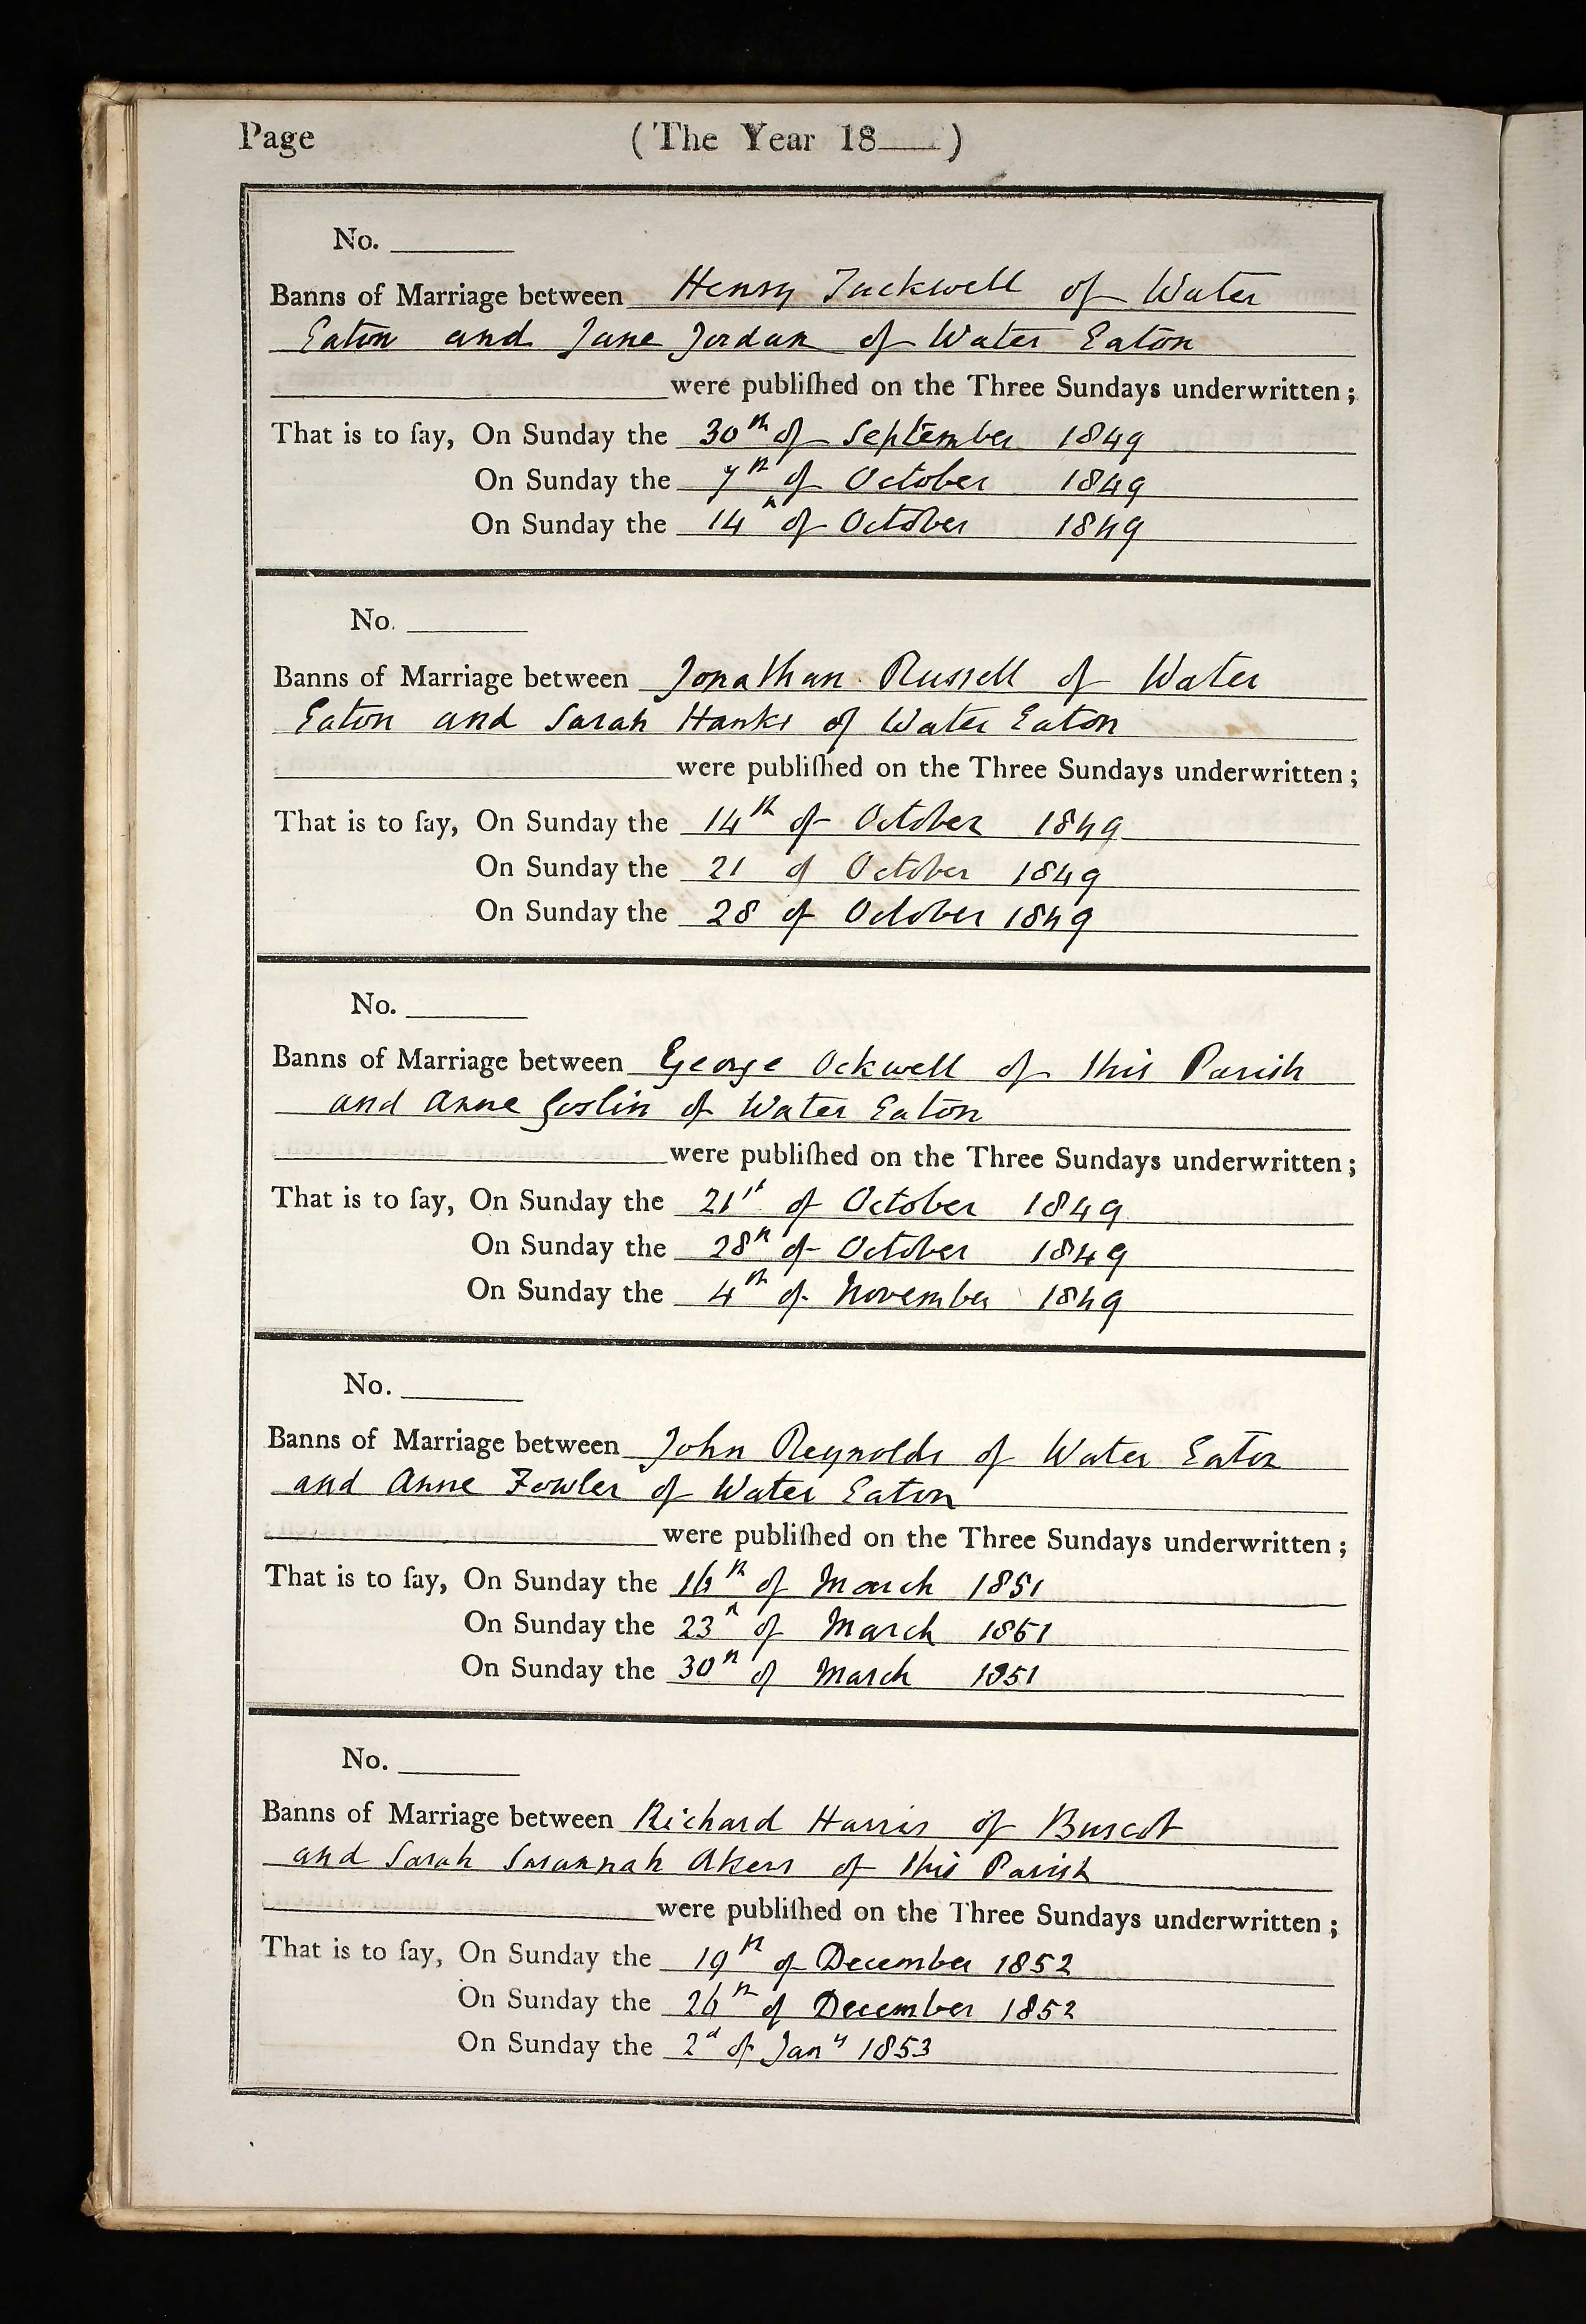 Page (The Year 18___)
No. ______
Banns of Marriage between Henry Tuckwell of Water
Eaton and Jane Jordan of Water Eaton
were publiſhed on the Three Sundays underwritten;
That is to ſay, On Sunday the 30th of September 1849
On Sunday the 7th of October 1849
On Sunday the 14th of October 1849
No. ______
Banns of Marriage between Jonathan Russell of Water
Eaton and Sarah Hanks of Water Eaton
were publiſhed on the Three Sundays underwritten;
That is to ſay, On Sunday the 14th of October 1849
On Sunday the 21 of October 1849
On Sunday the 28 of October 1849
No. ______
Banns of Marriage between George Ockwell of this Parish
and Anne Goslin of Water Eaton
were publiſhed on the Three Sundays underwritten;
That is to ſay, On Sunday the 21st of October 1849
On Sunday the 28th of October 1849
On Sunday the 4th of November 1849
No. ______
Banns of Marriage between John Reynolds of Water Eaton
and Anne Fowler of Water Eaton
were publiſhed on the Three Sundays underwritten;
That is to ſay, On Sunday the 16th of March 1851
On Sunday the 23d of March 1851
On Sunday the 30th of March 1851
No. ______
Banns of Marriage between Richard Harris of Buscot
and Sarah Susannah Akers of this Parish
were publiſhed on the Three Sundays underwritten;
That is to ſay, On Sunday the 19th of December 1852
On Sunday the 26th of December 1852
On Sunday the 2d of Jany 1853